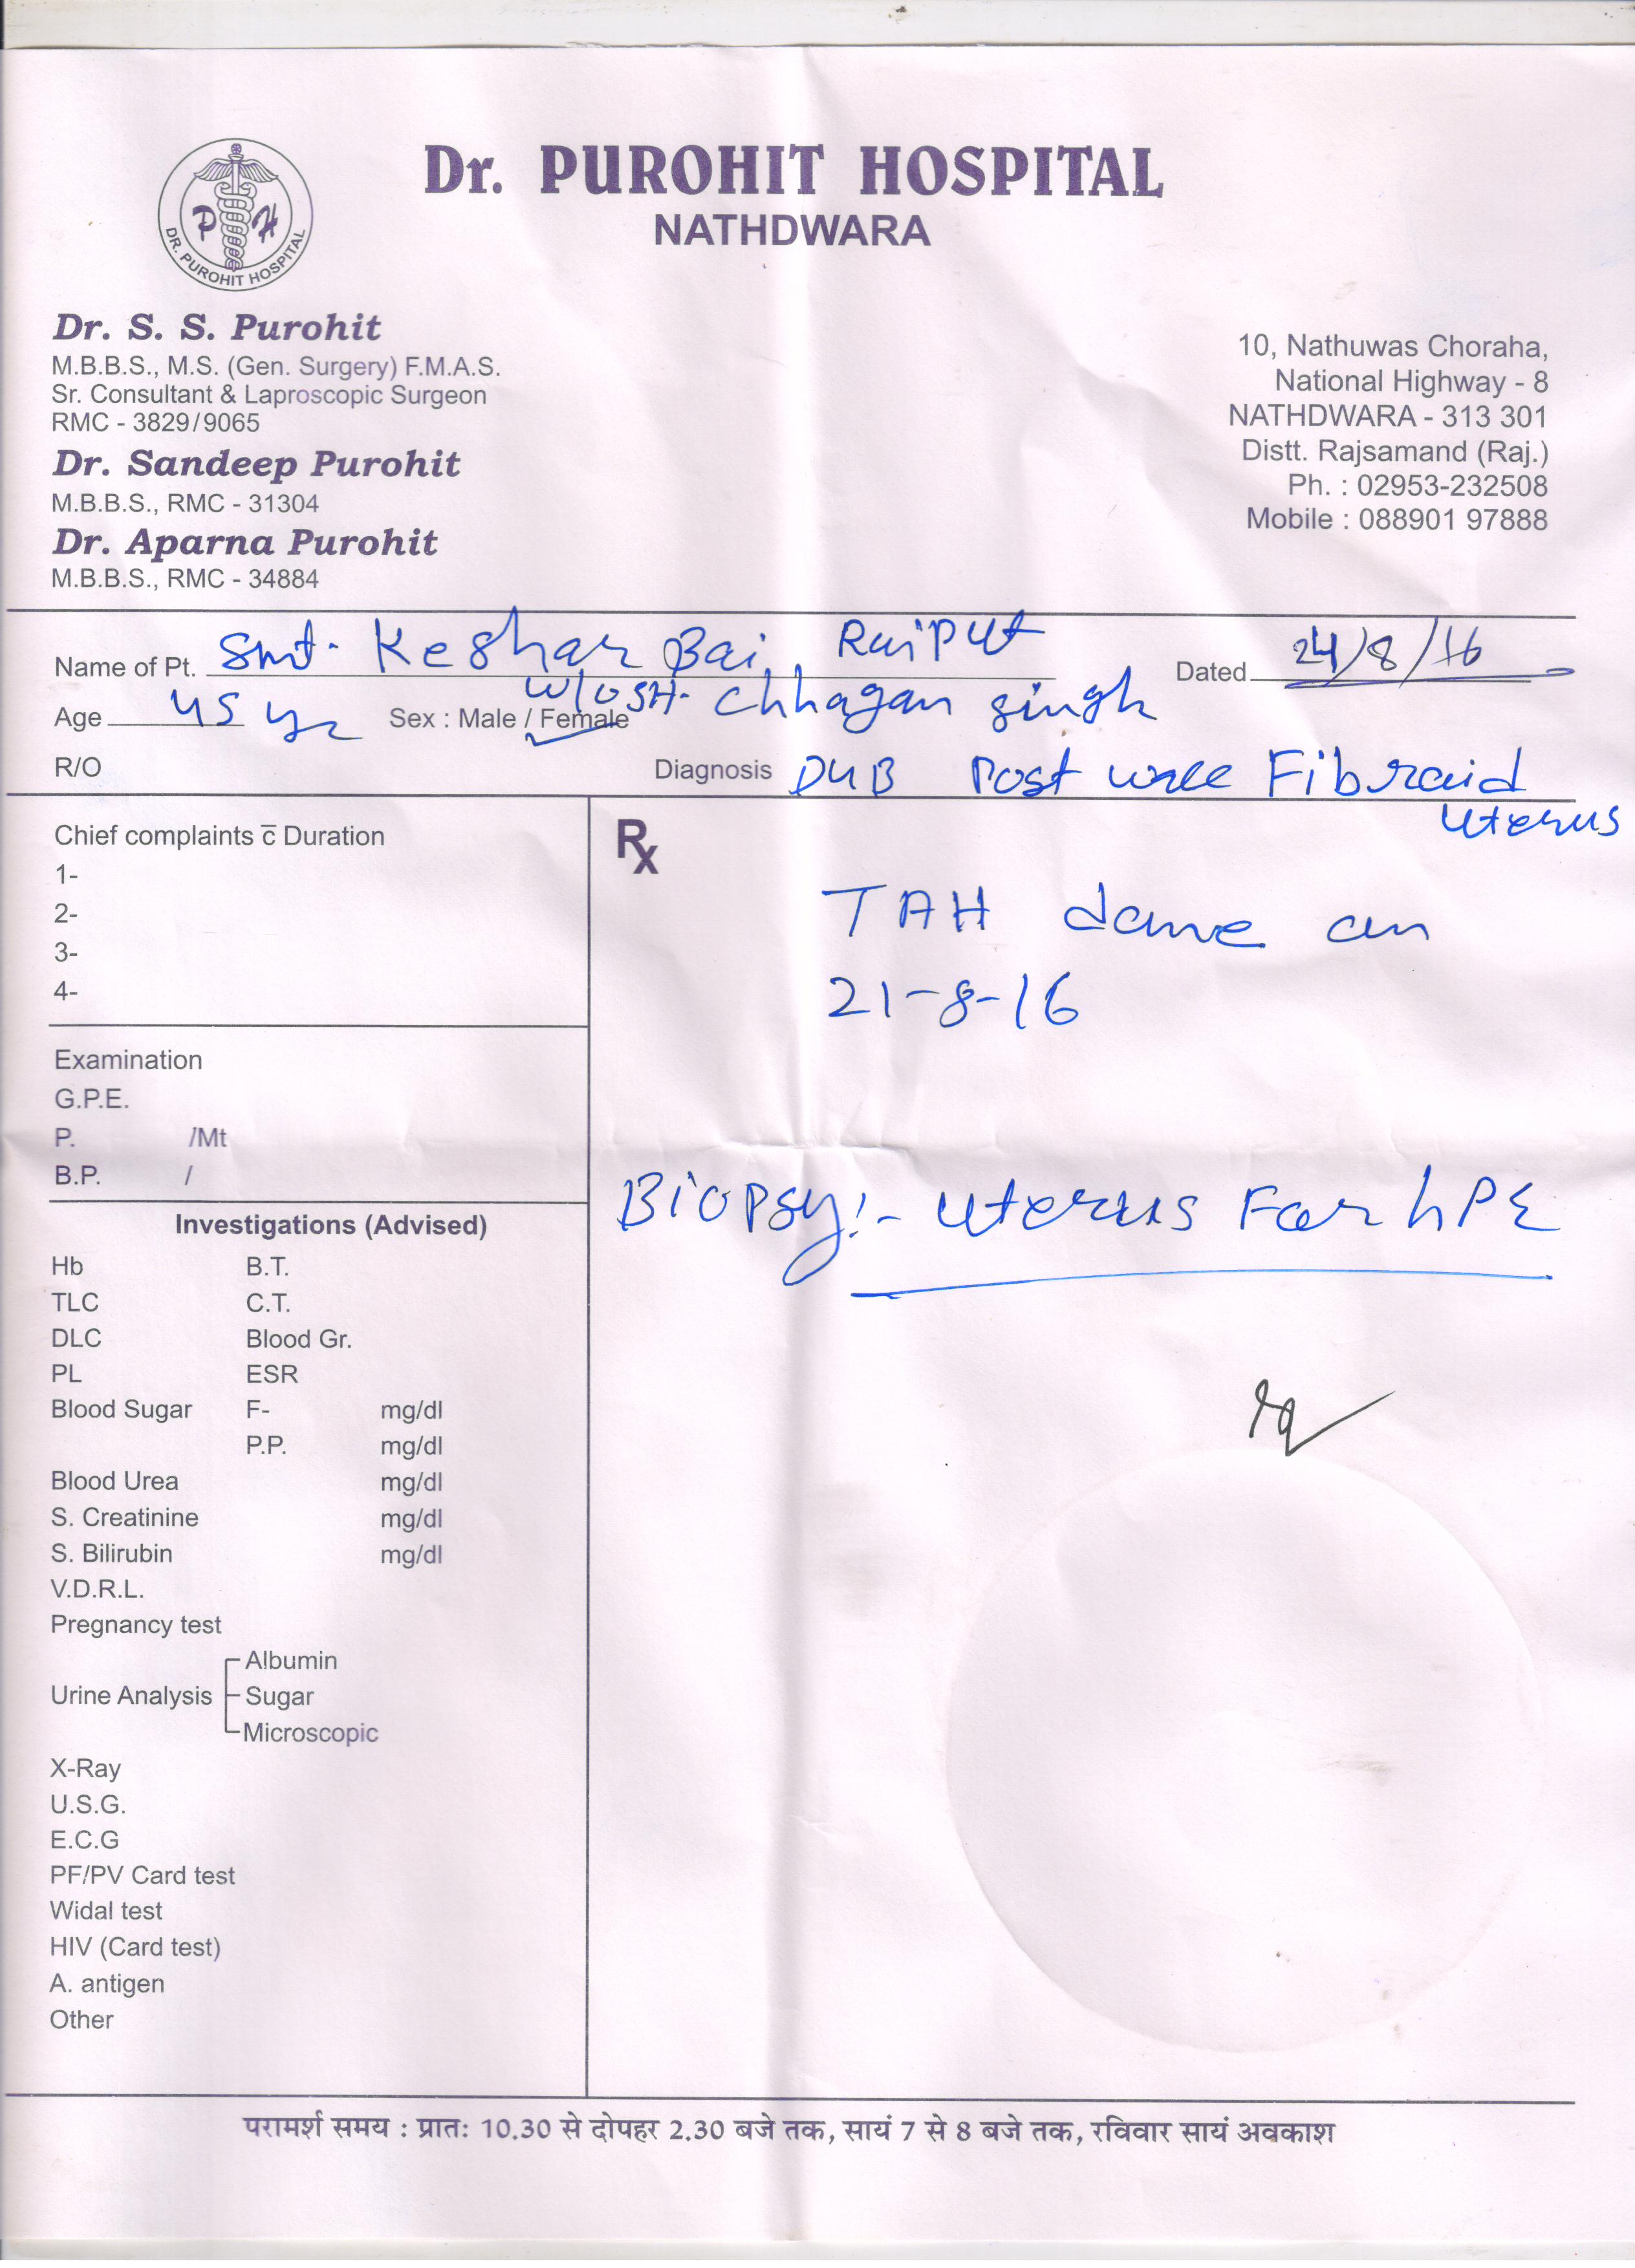 Dr. PUROHIT HOSPITAL
NATHDWARA
P H
DR. PUROHIT HOSPITAL
Dr. S. S. Purohit
M.B.B.S., M.S. (Gen. Surgery) F.M.A.S.
Sr. Consultant & Laproscopic Surgeon
RMC - 3829/9065
Dr. Sandeep Purohit
M.B.B.S., RMC - 31304
Dr. Aparna Purohit
M.B.B.S., RMC - 34884
10, Nathuwas Choraha,
National Highway - 8
NATHDWARA - 313 301
Distt. Rajsamand (Raj.)
Ph. : 02953-232508
Mobile : 088901 97888
Name of Pt. Smt. Keshar Bai Rajput Dated 24/8/16
W/O SH. Chhagan Singh
Age 45 yr Sex : Male / Female
R/O Diagnosis DUB Post wall Fibroid
uterus
Chief complaints c̅ Duration
1-
2-
3-
4-
Rx
TAH done on
21-8-16
Examination
G.P.E.
P. /Mt
B.P. /
Biopsy:- uterus For hPE
Investigations (Advised)
Hb B.T.
TLC C.T.
DLC Blood Gr.
PL ESR
Blood Sugar F- mg/dl
P.P. mg/dl
Blood Urea mg/dl
S. Creatinine mg/dl
S. Bilirubin mg/dl
V.D.R.L.
Pregnancy test
Albumin
Urine Analysis Sugar
Microscopic
X-Ray
U.S.G.
E.C.G
PF/PV Card test
Widal test
HIV (Card test)
A. antigen
Other
परामर्श समय : प्रातः 10.30 से दोपहर 2.30 बजे तक, सायं 7 से 8 बजे तक, रविवार सायं अवकाश